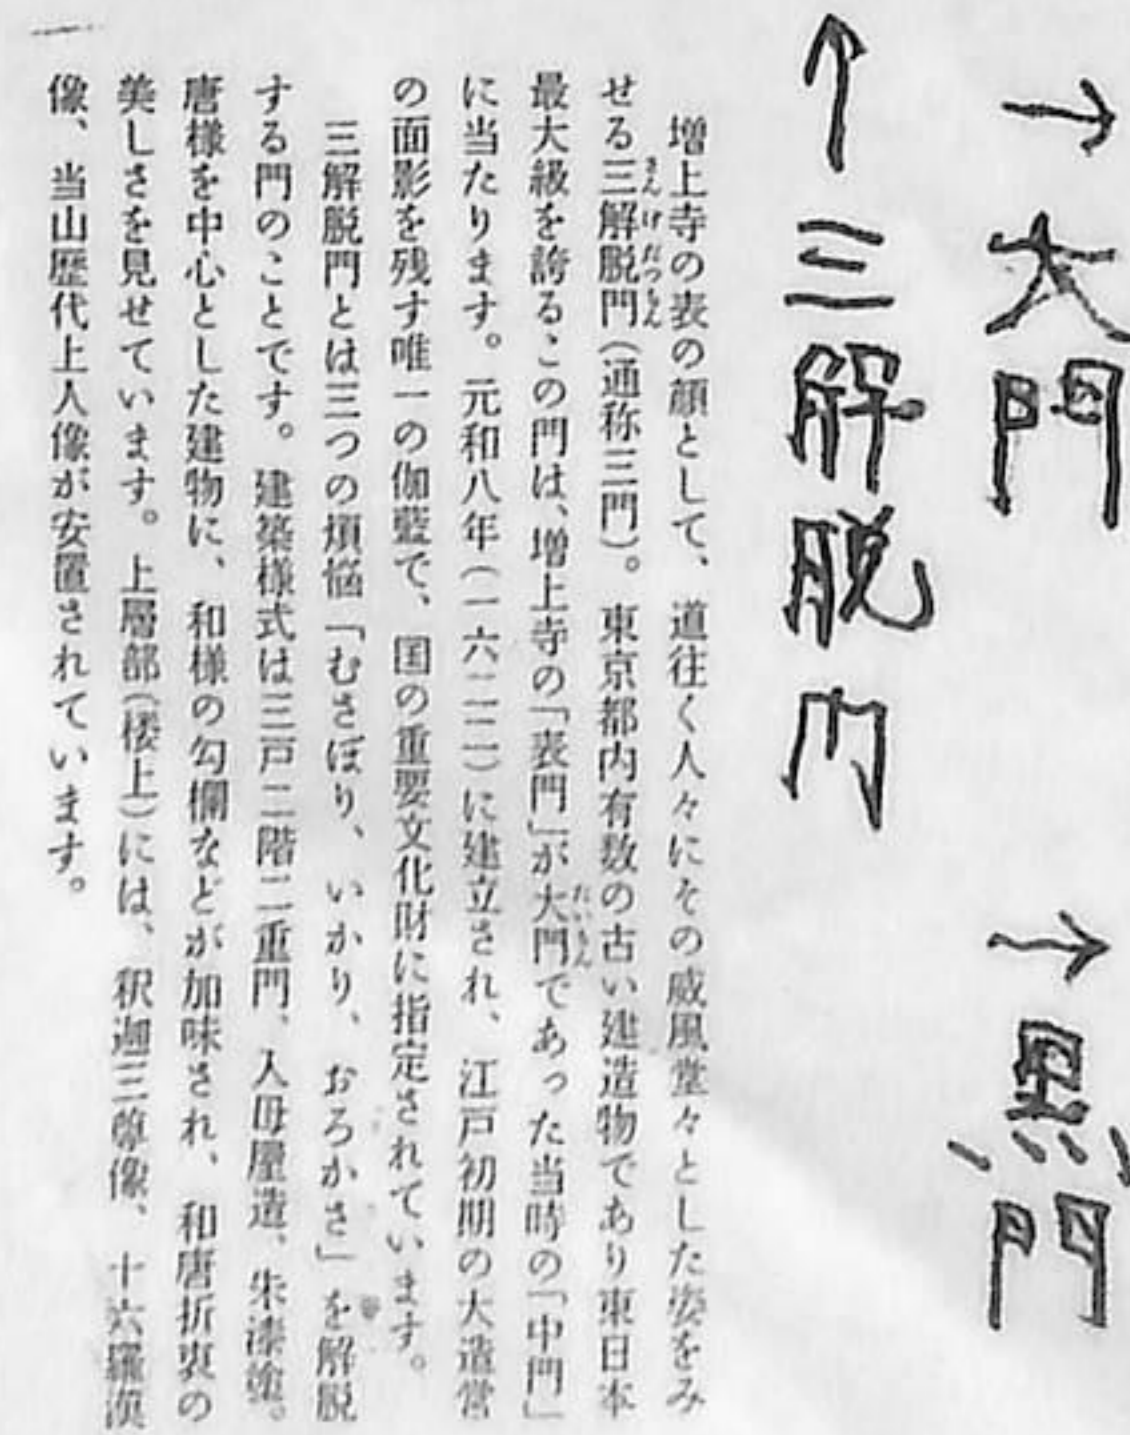 →大門
→黒門
↑三解脱門
増上寺の表の顔として、道往く人々にその威風堂々とした姿をみ
せる三解脱門(通称三門)。東京都内有数の古い建造物であり東日本
さんげだつもん
最大級を誇るこの門は、増上寺の「表門」が大門であった当時の「中門」
だいもん
に当たります。元和八年(一六二二)に建立され、江戸初期の大造営
の面影を残す唯一の伽藍で、国の重要文化財に指定されています。
三解脱門とは三つの煩悩「むさぼり、いかり、おろかさ」を解脱
する門のことです。建築様式は三戸二階二重門、入母屋造、朱漆塗。
唐様を中心とした建物に、和様の勾欄などが加味され、和唐折衷の
美しさを見せています。上層部(楼上)には、釈迦三尊像、十六羅漢
像、当山歴代上人像が安置されています。